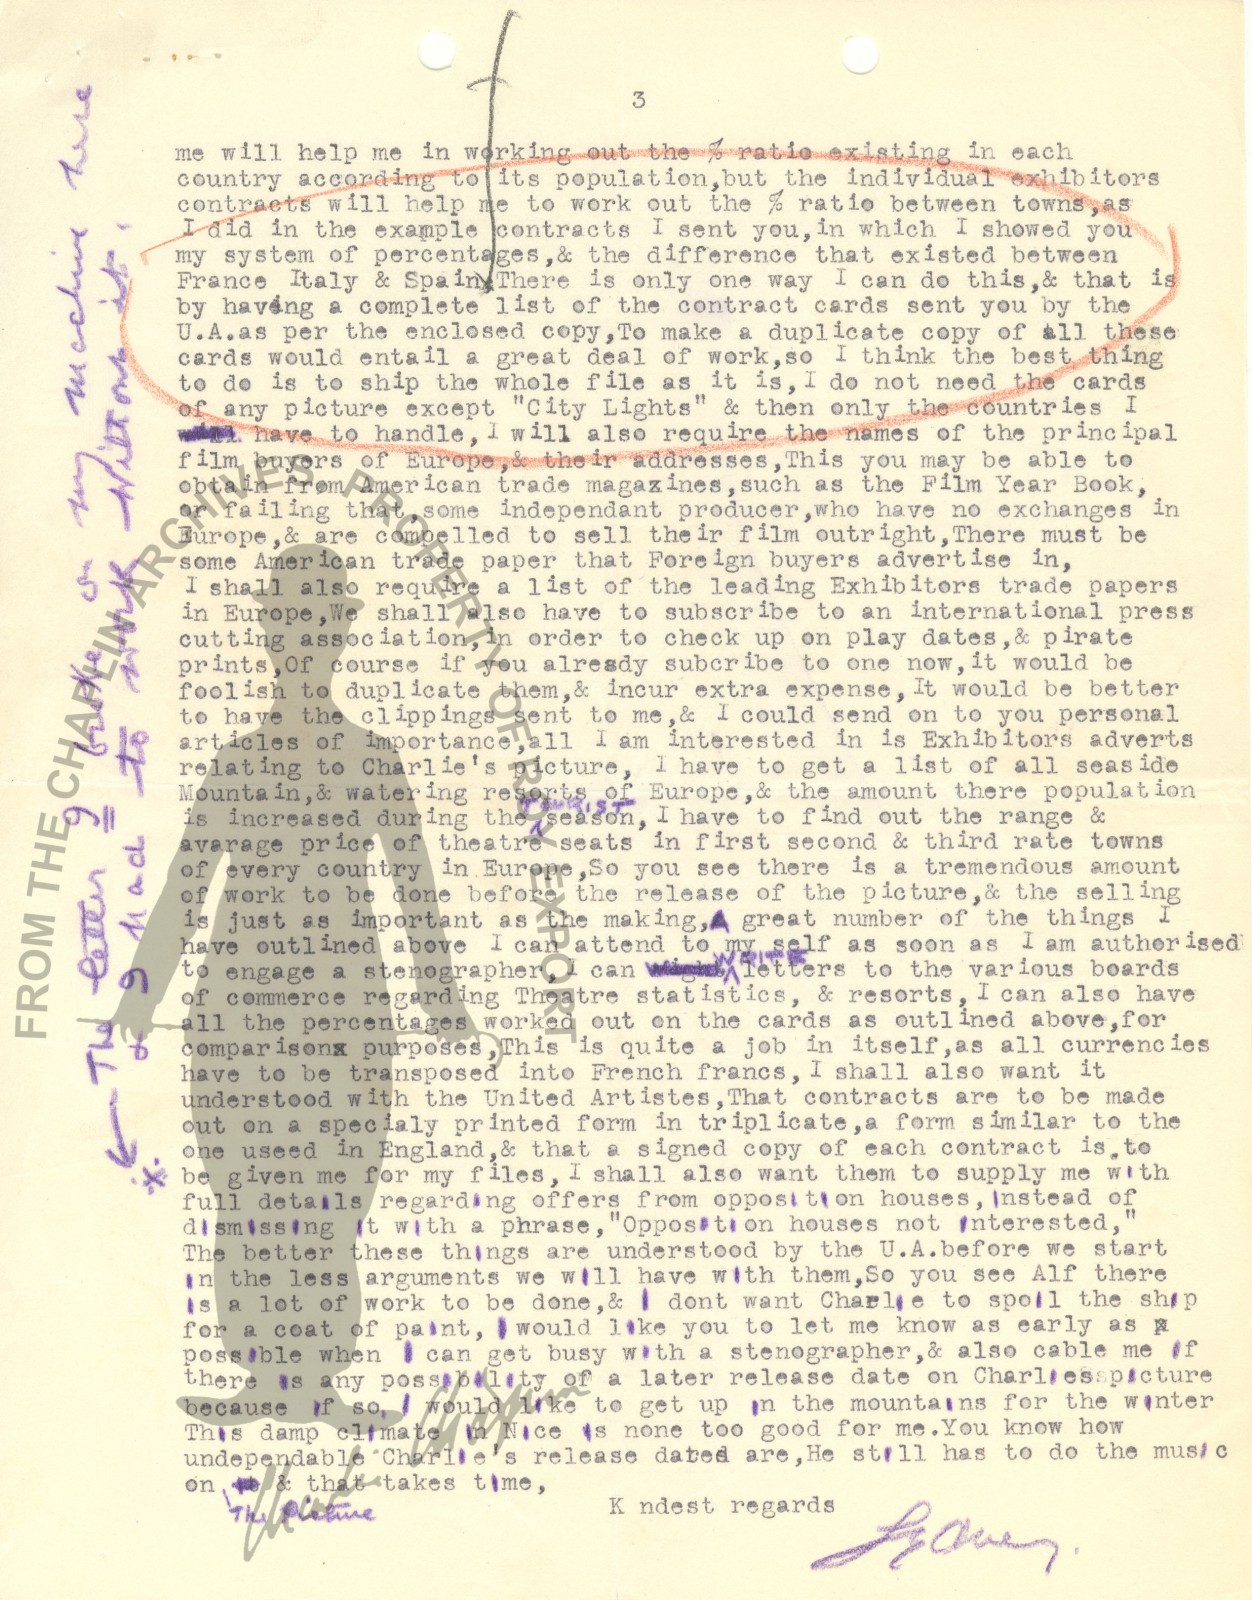 3
me will help me in working out the % ratio existing in each
country according to its population,but the individual exhibitors
contracts will help me to work out the % ratio between towns,as
I did in the example contracts I sent you,in which I showed you
my system of percentages,& the difference that existed between
France Italy & Spain,There is only one way I can do this,& that is
by having a complete list of the contract cards sent you by the
U.A.as per the enclosed copy,To make a duplicate copy of all these
cards would entail a great deal of work,so I think the best thing
to do is to ship the whole file as it is,I do not need the cards
of any picture except "City Lights" & then only the countries I
will have to handle,I will also require the names of the principal
film buyers of Europe,& their addresses,This you may be able to
obtain from American trade magazines,such as the Film Year Book,
or failing that,some independant producer,who have no exchanges in
Europe,& are compelled to sell their film outright,There must be
some American trade paper that Foreign buyers advertise in,
I shall also require a list of the leading Exhibitors trade papers
in Europe,We shall also have to subscribe to an international press
cutting association,in order to check up on play dates,& pirate
prints,Of course if you already subcribe to one now,it would be
foolish to duplicate them,& incur extra expense,It would be better
to have the clippings sent to me,& I could send on to you personal
articles of importance,all I am interested in is Exhibitors adverts
relating to Charlie's picture, I have to get a list of all seaside
Mountain,& watering resorts of Europe,& the amount there population
is increased during the TOURIST season,I have to find out the range &
avarage price of theatre seats in first second & third rate towns
of every country in Europe,So you see there is a tremendous amount
of work to be done before the release of the picture,& the selling
is just as important as the making,A great number of the things I
have outlined above I can attend to my self as soon as I am authorised
to engage a stenographer,I can WRITE letters to the various boards
of commerce regarding Theatre statistics, & resorts,I can also have
all the percentages worked out on the cards as outlined above,for
comparisonx purposes,This is quite a job in itself,as all currencies
have to be transposed into French francs,I shall also want it
understood with the United Artistes,That contracts are to be made
out on a specialy printed form in triplicate,a form similar to the
one useed in England,& that a signed copy of each contract is to
be given me for my files,I shall also want them to supply me with
full details regarding offers from opposition houses,instead of
dismissing it with a phrase,"Opposition houses not interested,"
The better these things are understood by the U.A.before we start
in the less arguments we will have with them,So you see Alf there
is a lot of work to be done,& I dont want Charlie to spoil the ship
for a coat of paint,I would like you to let me know as early as
possible when I can get busy with a stenographer,& also cable me if
there is any possibility of a later release date on Charlies picture
because if so,I would like to get up in the mountains for the winter
This damp climate in Nice is none too good for me.You know how
undependable Charlie's release dates are,He still has to do the music
on The Picture & that takes time,
K ndest regards
Sydney.
← The letter I broke on my machine here
& I had to work without it.
FROM THE CHAPLIN ARCHIVES PROPERTY OF ROY EXPORT
Charlie Chaplin